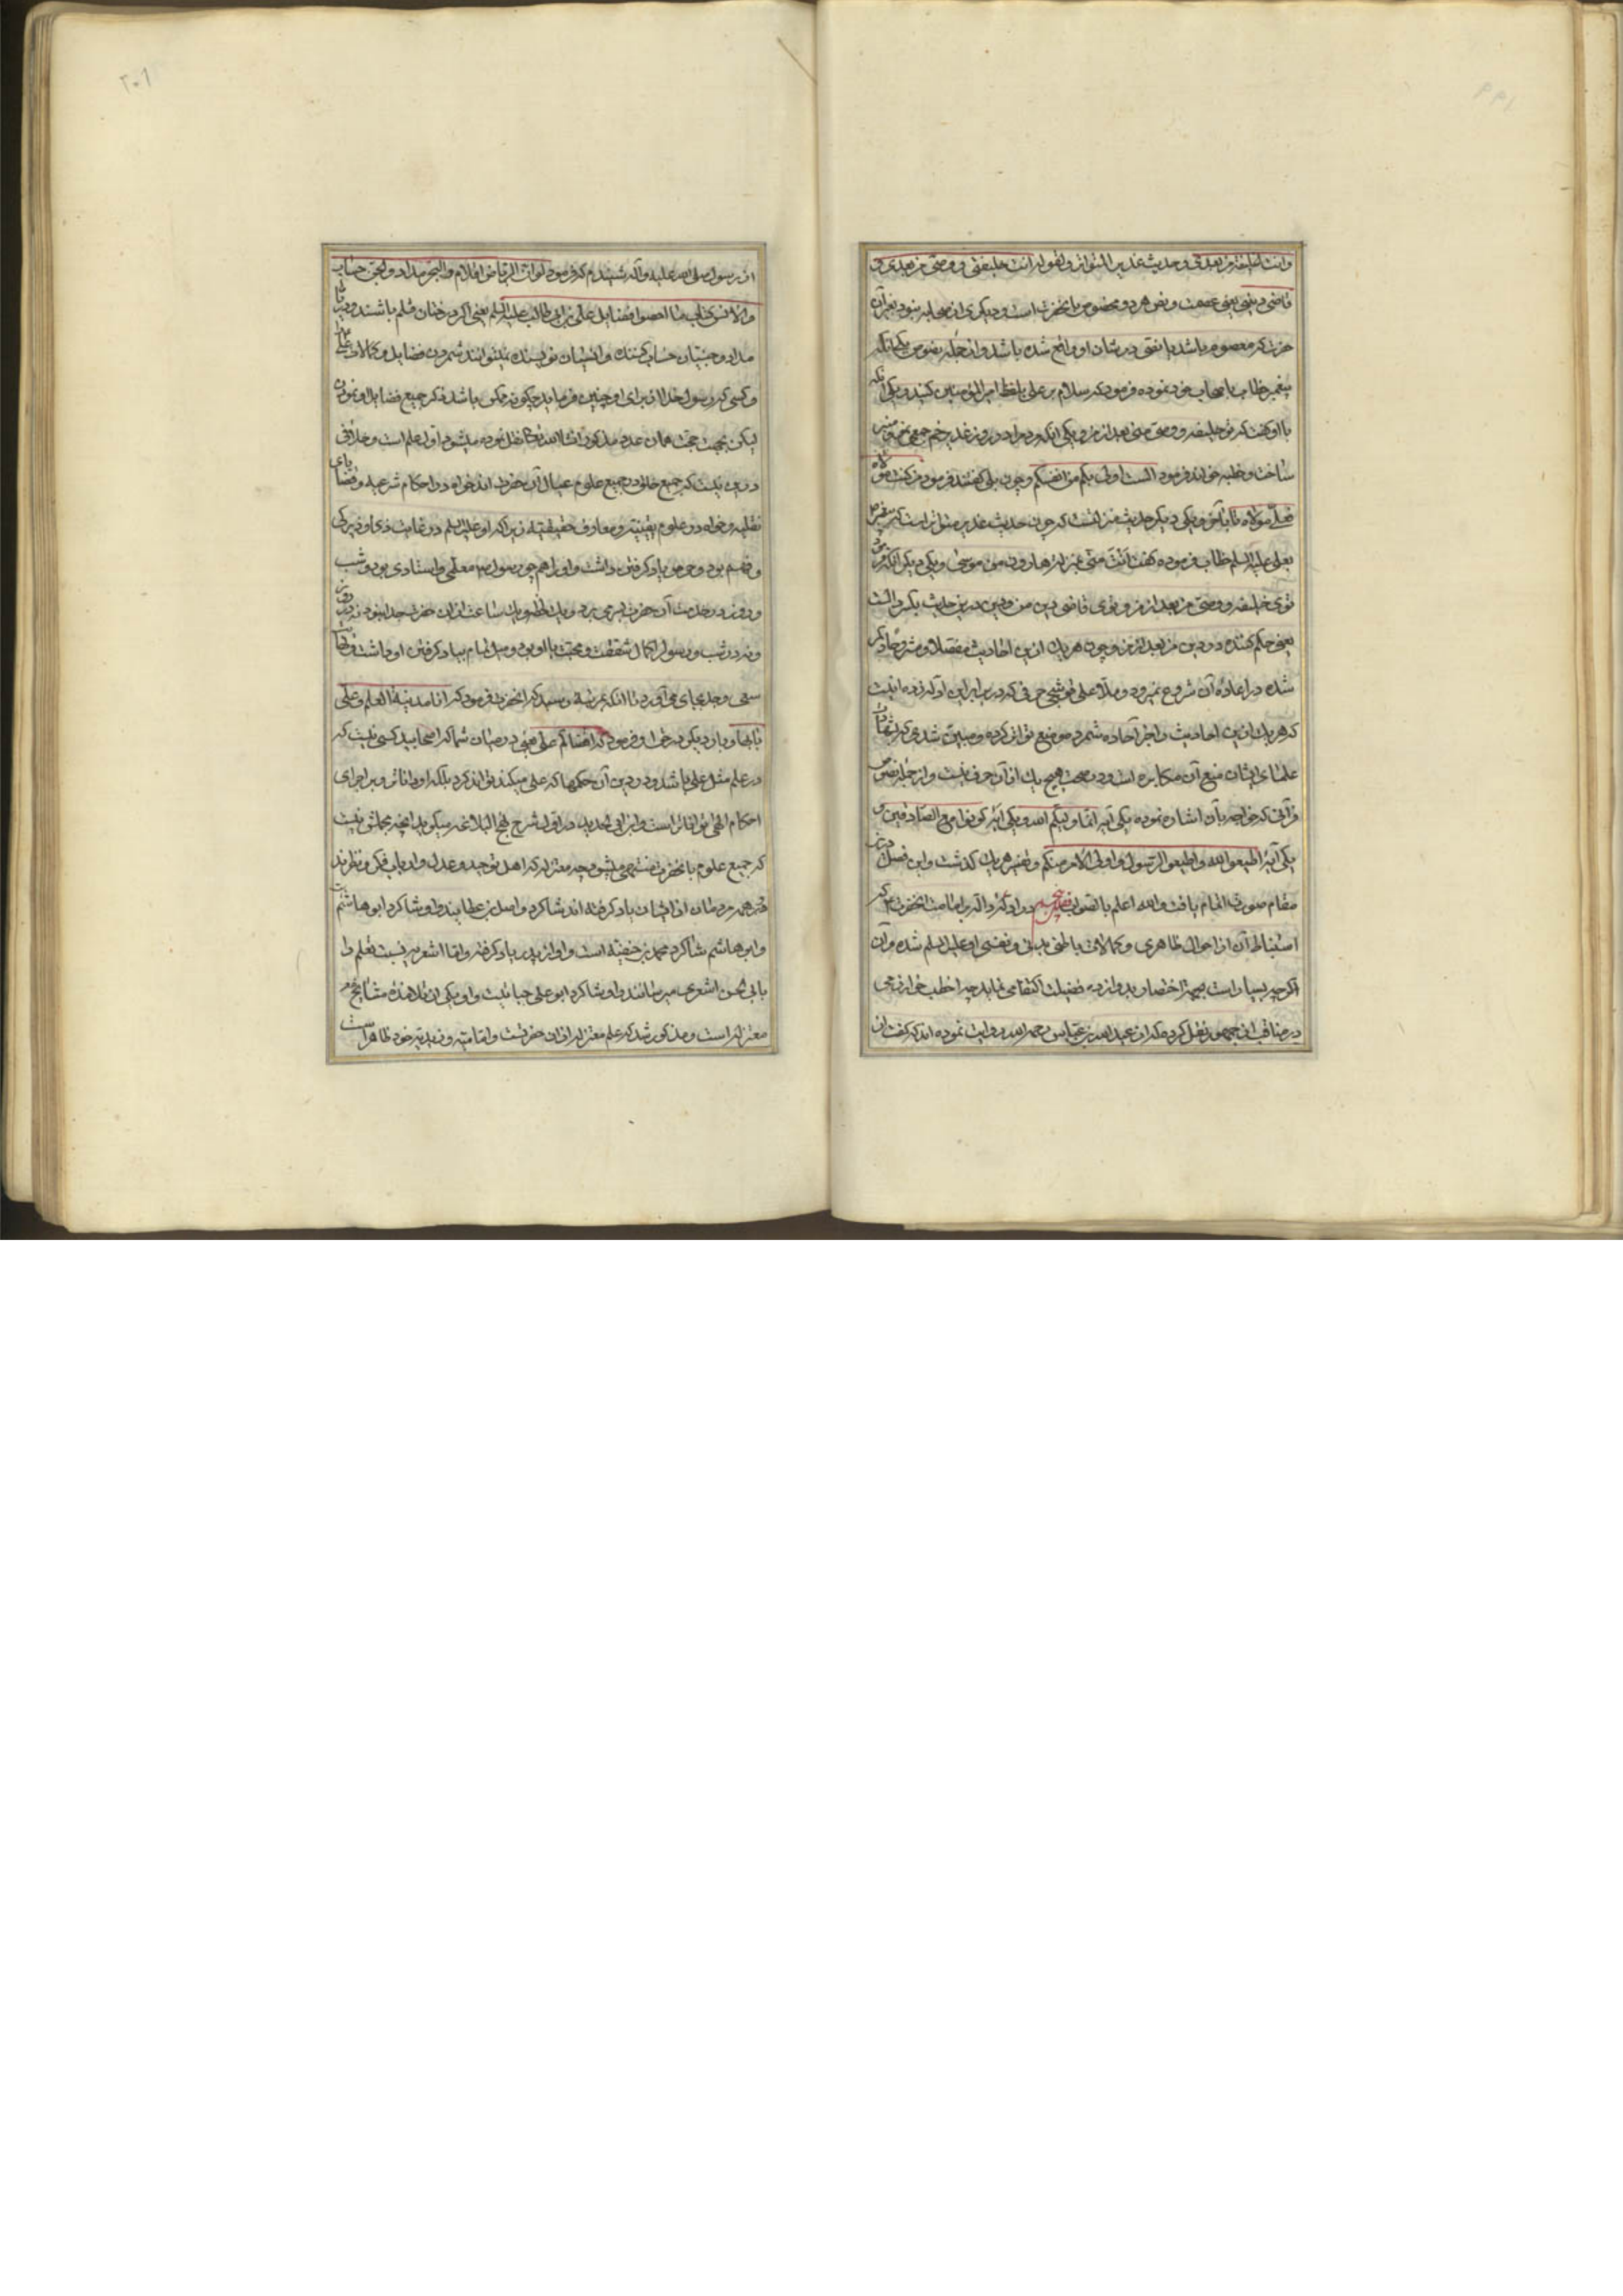 وانت الخلیفة من بعدی و حدیث غدیر المتواتر و لقوله انت خلیفتی و وصیی من بعدی و
قاضی دینی یعنی عصمت و نص هر دو مخصوص بانحضرتست و دیکری از صحابه نبود بغیر آن
حضرت که معصوم باشد یا نصی در شان او واقع شده باشد و از جمله نصوص یکی آنکه
پیغمبر خطاب باصحاب خود نموده فرمود که سلام بر علی بلفظ امیر المؤمنین کنید و یکی آنکه
با او کفت که تو خلیفه و وصی منی بعد از من و یکی آنکه مردم را در روز غدیر خم جمع نمود و منبر
ساخت و خطبه خواند فرمود الست اولی بکم من انفسکم و چون بلی کفتند فرمود من کنت مولاه
فعلی مولاه تا بآخر و یکی دیکر حدیث منزلتست که چون حدیث غدیر متواتر است که پیغمبر
بعلی علیه السلم خطاب فرموده کفت انت منی بمنزلة هارون من موسی و یکی دیکر آنکه فرمود
توی خلیفه و وصی من بعد از من و توی قاضی دین من و دین درین حدیث بکسر دالست
یعنی حکم کننده در دین من بعد از من و چون هر یک ازین احادیث مفصلا و مشروحا ذکر
شده در اعاده آن شروع نمیرود و ملا علی قوشچی حرفی که در برابر این ادله زده اینست
که هر یک ازین احادیث و اخبر آحاده شمرد موضع تواتر کرده و مبین شدی که ثقات
علمای ایشان منع آن مکابره است و در صحت هیچ یک از آن حرف نیست و از جمله نصوص
قرآنی که خواجه بآن اشاره نموده یکی آیه انما ولیکم الله و یکی آیه کونوا مع الصادقین و
یکی آیه اطیعوا الله و اطیعوا الرسول و اولی الامر منکم و تفسیر هر یک کذشت و این فصل درین
مقام صورت اتمام یافت و الله اعلم بالصواب در ادله دالة بر امامت انحضرت که
استنباط آن از احوال ظاهری و کمالات باطنی بدنی و نفسی او علیه السلم شده و آن
اکرچه بسیار است بجهة اختصار بدوازده فضیلت اکتفا می نماید چه اخطب خوارزمی
در مناقب ابی جمهور نقل کرده که از عبدالله بن عباس رحمه الله روایت نموده اند که کفت از
از رسول صلی الله علیه و آله شنیدم که فرمود لو ان الریاض اقلام و البحر مداد و الجن حساب
و الانس کتاب ما احصوا فضایل علی بن ابی طالب علیه السلم یعنی اکر درختان قلم باشند و دریا
مداد و جنیان حساب کننده و انسیان نویسنده نمیتوانند شمردن فضایل و کمالات علی را
و کسی که رسول خدا از برای او چنین فرماید چکونه ممکن باشد ذکر جمیع فضایل او نمودن
لیکن بجهت حجت همان عدد مذکور انشاالله تعالی نقل نموده میشود اول علم است و خلافی
درین نیست که جمیع خلق در جمیع علوم عیال آن حضرت اند خواه در احکام شرعیه و قضایای
نقلیه و خواه در علوم یقینیه و معارف حقیقیه زیرا که او علیه السلم در غایت ذکا و زیرکی
و فهم بود و حرص یاد کرفتن داشت و او را هم چون رسول معلمی و استادی بود و شب
و روز در خدمت آن حضرت بسر می برد و یک لحظه و یک ساعت از ان حضرت جدا نبود نه در روز
و نه در شب و رسول را کمال شفقت و محبت با او بود و میل تمام بیاد کرفتن او داشت و نهایت
سعی و جد بجای می آورد تا آنکه بمرتبه رسید که انحضرت فرمود که انا مدینة العلم و علی
بابها و بار دیکر فرمود که اقضاکم علی یعنی در میان شما که اصحابید کسی نیست که
در علم مثل علی باشد و در دین آن حکمها که علی میکند تواند کرد بلکه او داناتر و بر اجرای
احکام الهی تواناتر است و ابن ابی الحدید در اول شرح نهج البلاغه میکوید انچه مجملش اینست
که جمیع علوم بانحضرت منتهی میشود چه معتزله که اهل توحید و عدل و ارباب فکر و نظرند
همه مردمان از ایشان یاد کرفته اند شاکرد واصل بن عطایند و او شاکرد ابو هاشم است
و ابو هاشم شاکرد محمد بن حنفیه است و او از پدر یاد کرفته و اما اشعریه نسبت تعلم را
بابی الحسن اشعری میرسانند و او شاکرد ابو علی جبائیست و او یکی از تلامذه مشایخ
معتزله است و مذکور شد که علم معتزله از ان حضرتست و امامیه و زیدیه خود ظاهر است